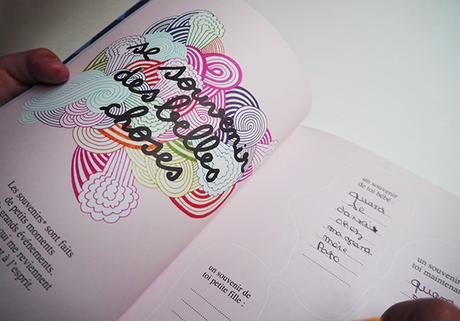 se
souvenir
des belles
choses
Les souvenirs* sont faits
de petits moments
grands événements.
me reviennent
à l'esprit.
un souvenir
de toi bébé :
quand
je
chez
ma grand
mère
un souvenir de
toi petite fille :
un souvenir de
toi maintenant
quand